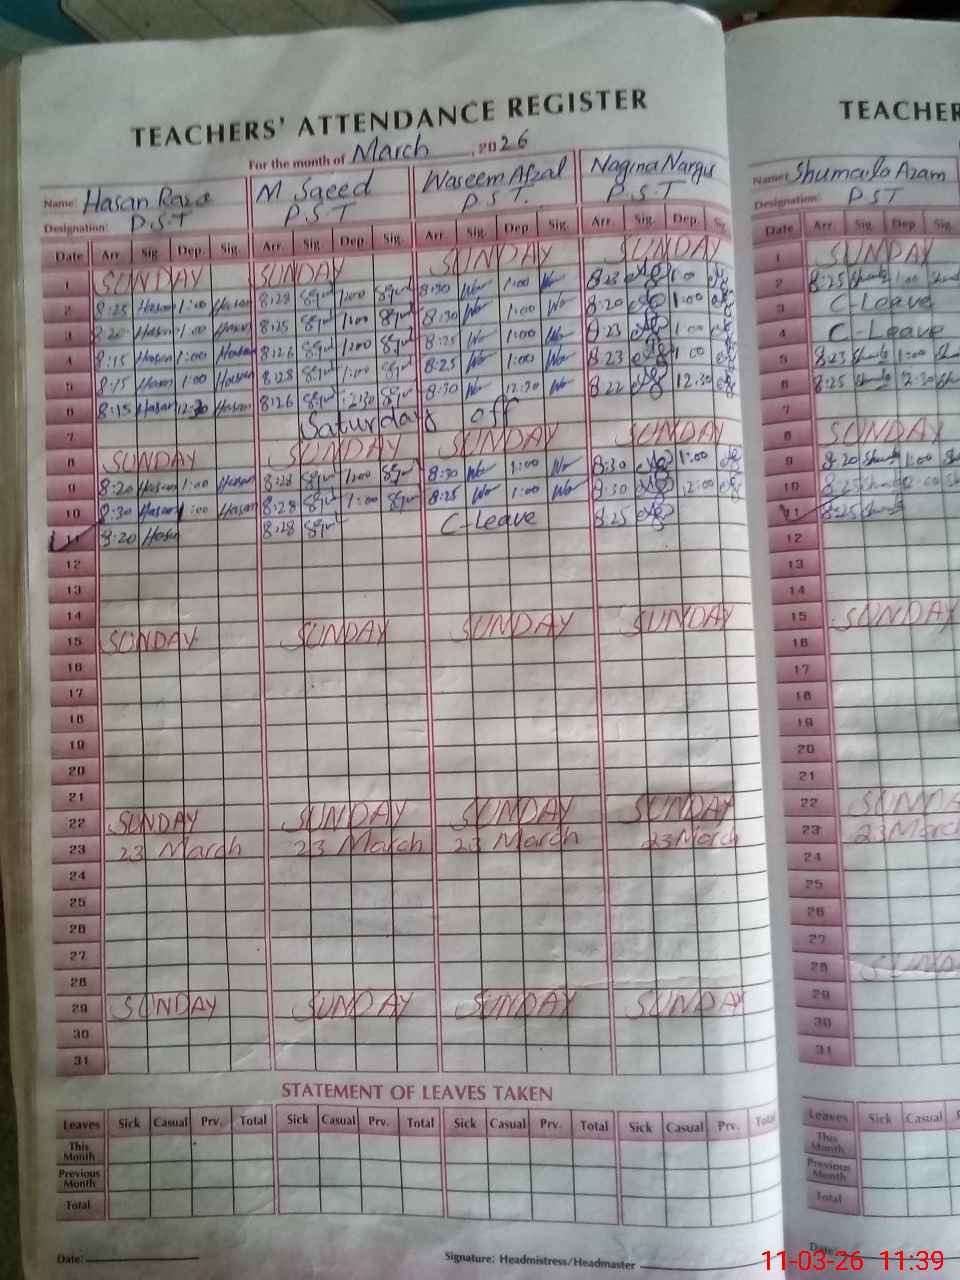 TEACHERS' ATTENDANCE REGISTER
For the month of March, 2026
Name: Hasan Raza M Saeed Waseem Afzal Nagina Nargis
Designation: P.S.T P.S.T P.S.T. P.S.T
Date Arr. Sig. Dep. Sig. Arr. Sig. Dep. Sig. Arr. Sig. Dep. Sig. Arr. Sig. Dep. Sig.
1 SUNDAY SUNDAY SUNDAY SUNDAY
2 8:25 Hasan 1:00 Hasan 8:28 1:00 8:30 1:00 8:23 1:00
3 8:20 Hasan 1:00 Hasan 8:25 1:00 8:30 1:00 8:20 1:00
4 8:15 Hasan 1:00 Hasan 8:26 1:00 8:25 1:00 8:23 1:00
5 8:15 Hasan 1:00 Hasan 8:28 1:00 8:25 1:00 8:23 1:00
6 8:15 Hasan 12:30 Hasan 8:26 12:30 8:30 12:30 8:22 12:30
7 Saturday off
8 SUNDAY SUNDAY SUNDAY SUNDAY
9 8:20 Hasan 1:00 Hasan 8:28 1:00 8:30 1:00 8:30 1:00
10 8:30 Hasan 1:00 Hasan 8:28 1:00 8:25 1:00 8:30 12:00
11 8:20 Hasan 8:28 C-Leave 8:25
12
13
14
15 SUNDAY SUNDAY SUNDAY SUNDAY
16
17
18
19
20
21
22 SUNDAY SUNDAY SUNDAY SUNDAY
23 23 March 23 March 23 March 23 March
24
25
26
27
28
29 SUNDAY SUNDAY SUNDAY SUNDAY
30
31
STATEMENT OF LEAVES TAKEN
Leaves Sick Casual Prv. Total Sick Casual Prv. Total Sick Casual Prv. Total Sick Casual Prv. Total
This Month
Previous Month
Total
Date: Signature: Headmistress/Headmaster
TEACHER
Name: Shumaila Azam
Designation: PST
Date Arr. Sig. Dep. Sig.
1 SUNDAY
2 8:25 1:00
3 C-Leave
4 C-Leave
5 8:23 1:00
6 8:25
7
8 SUNDAY
9 8:20 1:00
10 8:25
11 8:25
12
13
14
15 SUNDAY
16
17
18
19
20
21
22 SUNDA
23 23 March
24
25
26
27
28
29
30
31
Leaves Sick Casual
This Month
Previous Month
Total
Date:
11-03-26 11:39